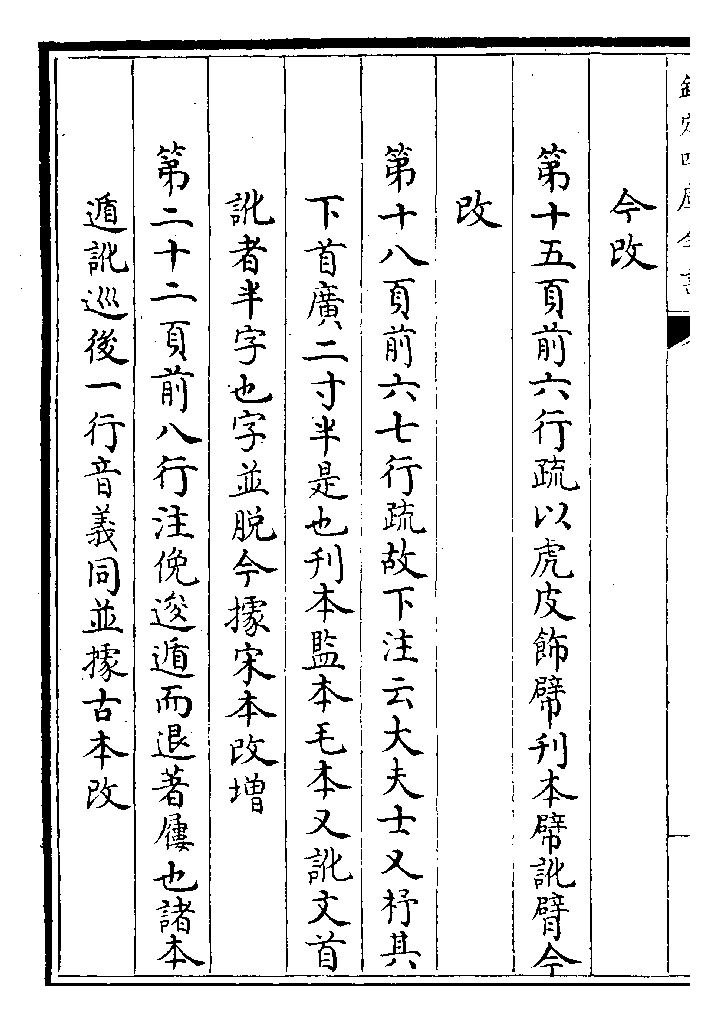 欽定四庫全書
今改
第十五頁前六行疏以虎皮飾幦刋本幦訛臂今
改
第十八頁前六七行疏故下注云大夫士又杼其
下首廣二寸半是也刋本監本毛本又訛文首
訛者半字也字並脱今據宋本改增
第二十二頁前八行注俛逡遁而退著屨也諸本
遁訛巡後一行音義同並據古本改